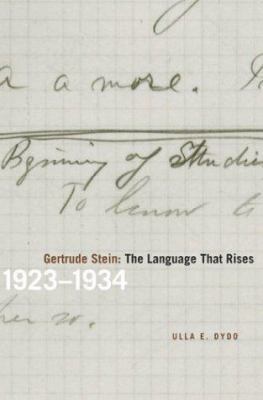 a a more.
Bginning of Studie
To know to
Gertrude Stein: The Language That Rises
1923–1934
her so.
ULLA E. DYDO